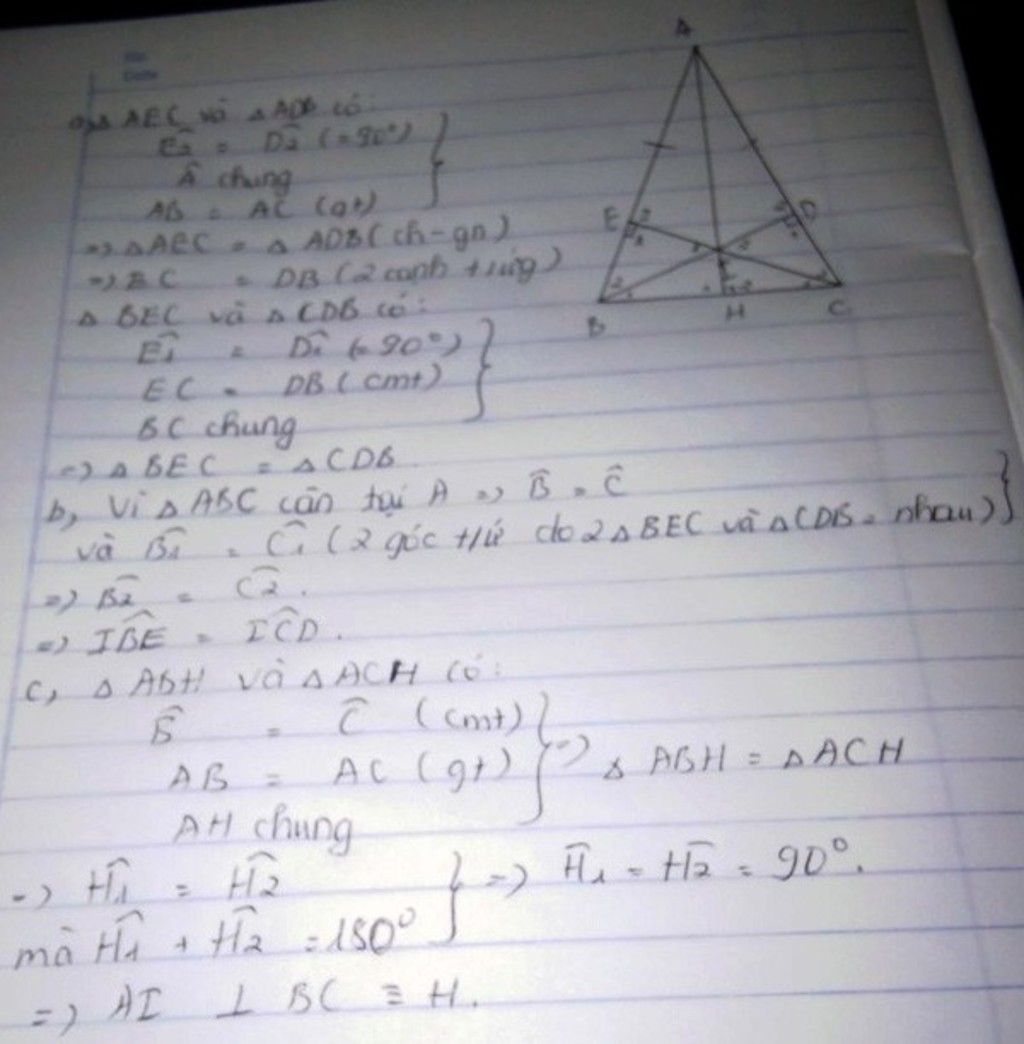 a, △ AEC và △ ADB có:
Ê2 = D̂2 (= 90°)
Â chung
AB = AC (gt)
=> △ AEC = △ ADB (ch - gn)
=> EC = DB (2 cạnh t/ứng)
△ BEC và △ CDB có:
Ê1 = D̂1 (= 90°)
EC = DB (cmt)
BC chung
=> △ BEC = △ CDB
b, Vì △ ABC cân tại A => B̂ = Ĉ
và B̂1 = Ĉ1 (2 góc t/ứ do 2 △ BEC và △ CDB = nhau)
=> B̂2 = Ĉ2.
=> IB̂E = IĈD.
c, △ ABH và △ ACH có:
B̂ = Ĉ (cmt)
AB = AC (gt)
AH chung
=> △ ABH = △ ACH
=> Ĥ1 = Ĥ2
mà Ĥ1 + Ĥ2 = 180°
=> Ĥ1 = Ĥ2 = 90°.
=> AI ⊥ BC ≡ H.
A
E
D
I
B
H
C